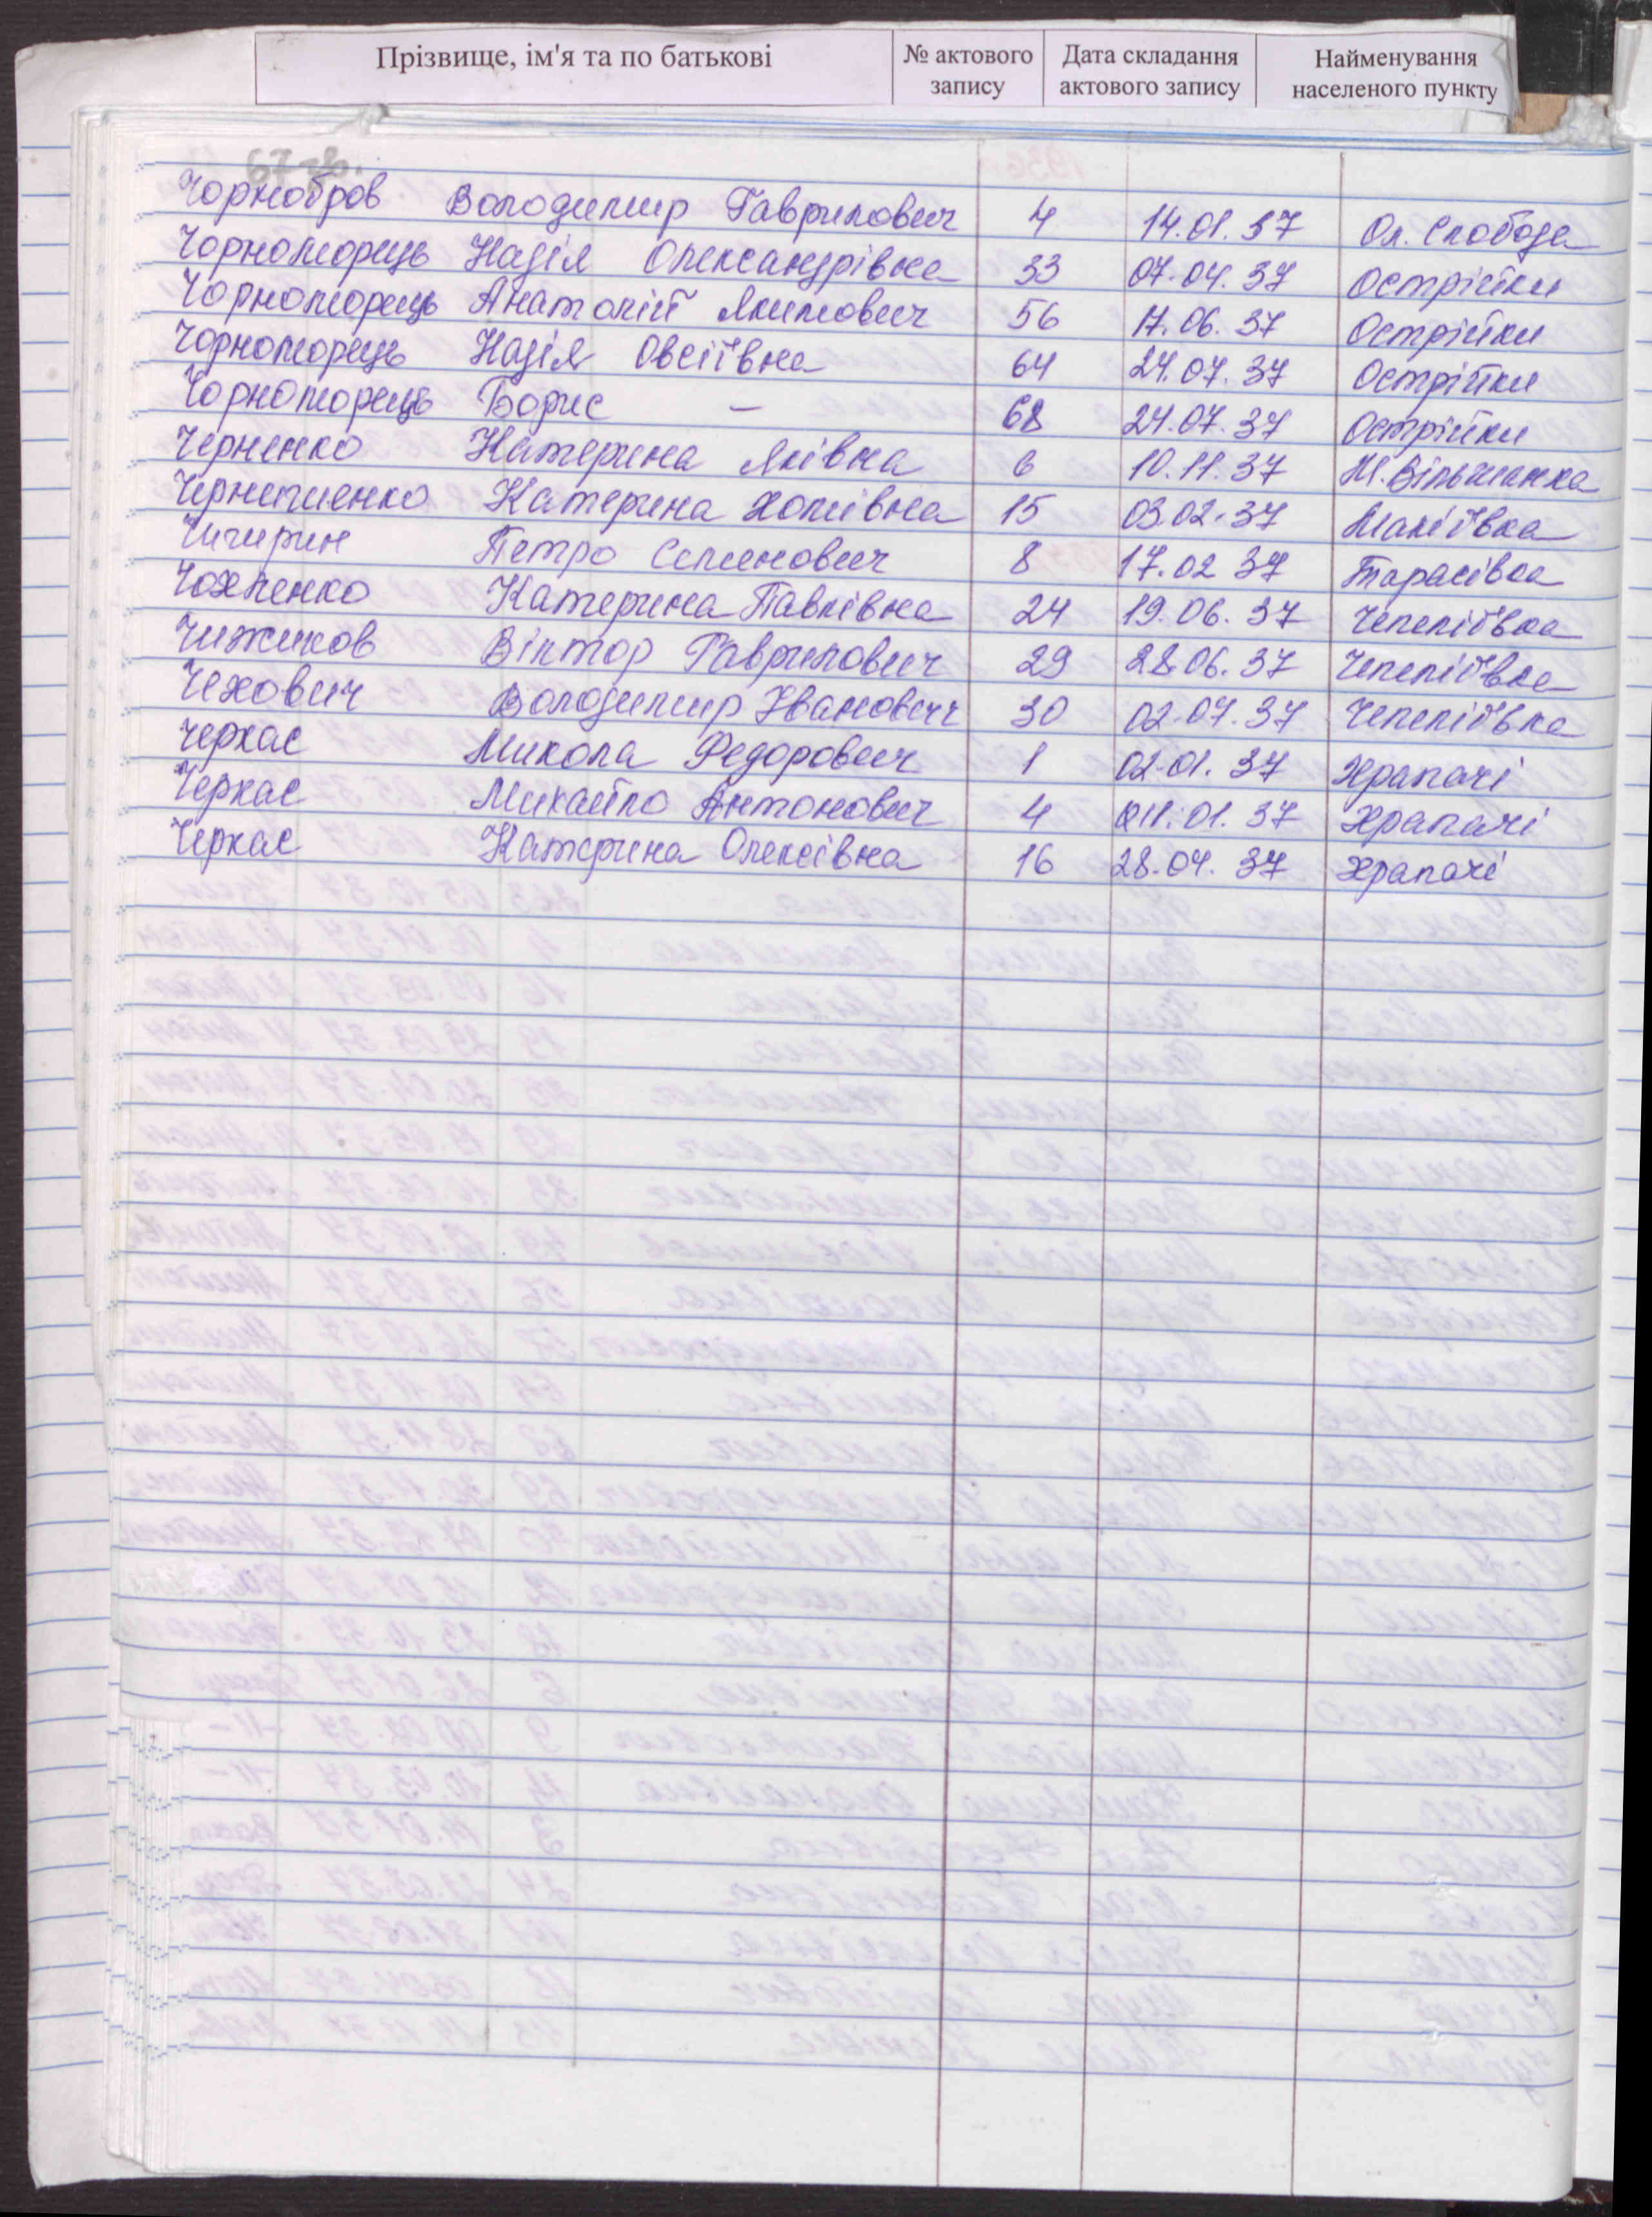 Прізвище, ім'я та по батькові № актового запису Дата складання актового запису Найменування населеного пункту
67 зв.
Чорнобров Володимир Гаврилович 4 14.01.37 Ол. Слобода
Чорноморець Надія Олександрівна 33 07.04.37 Острійки
Чорноморець Анатолій Якимович 56 17.06.37 Острійки
Чорноморець Надія Овсіївна 64 24.07.37 Острійки
Чорноморець Борис – 68 24.07.37 Острійки
Черненко Катерина Яківна 6 10.11.37 М.Вільшанка
Катерина Хомівна 15 03.02.37 Макіївка
Чигирин Петро Семенович 8 17.02 37 Тарасівка
Чохленко Катерина Павлівна 24 19.06.37 Чепеліївка
Чижиков Віктор Гаврилович 29 28.06.37 Чепеліївка
Чехович Володимир Іванович 30 02.07.37 Чепеліївка
Черкас Микола Федорович 1 02.01.37 Храпачі
Черкас Михайло Антонович 4 11.01.37 Храпачі
Черкас Катерина Олексіївна 16 28.04.37 Храпачі